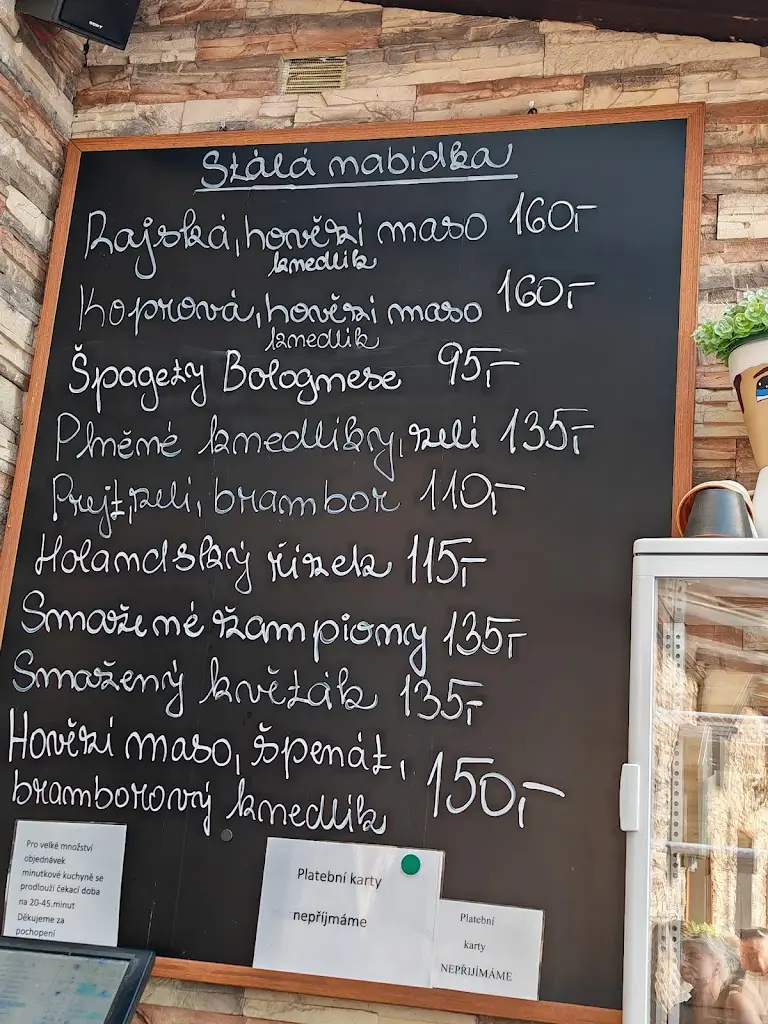 SONY
Stálá nabídka
Rajská, hovězí maso 160,-
knedlík
Koprová, hovězí maso 160,-
knedlík
Špagety Bolognese 95,-
Plněné knedlíky, zelí 135,-
Prejt, zelí, brambor 110,-
Holandský řízek 115,-
Smažené žampiony 135,-
Smažený květák 135,-
Hovězí maso, špenát, 150,-
bramborový knedlík
Pro velké množství
objednávek
minutkové kuchyně se
prodlouží čekací doba
na 20-45.minut
Děkujeme za
pochopení
Platební karty
nepříjmáme
Platební
karty
NEPŘIJÍMÁME